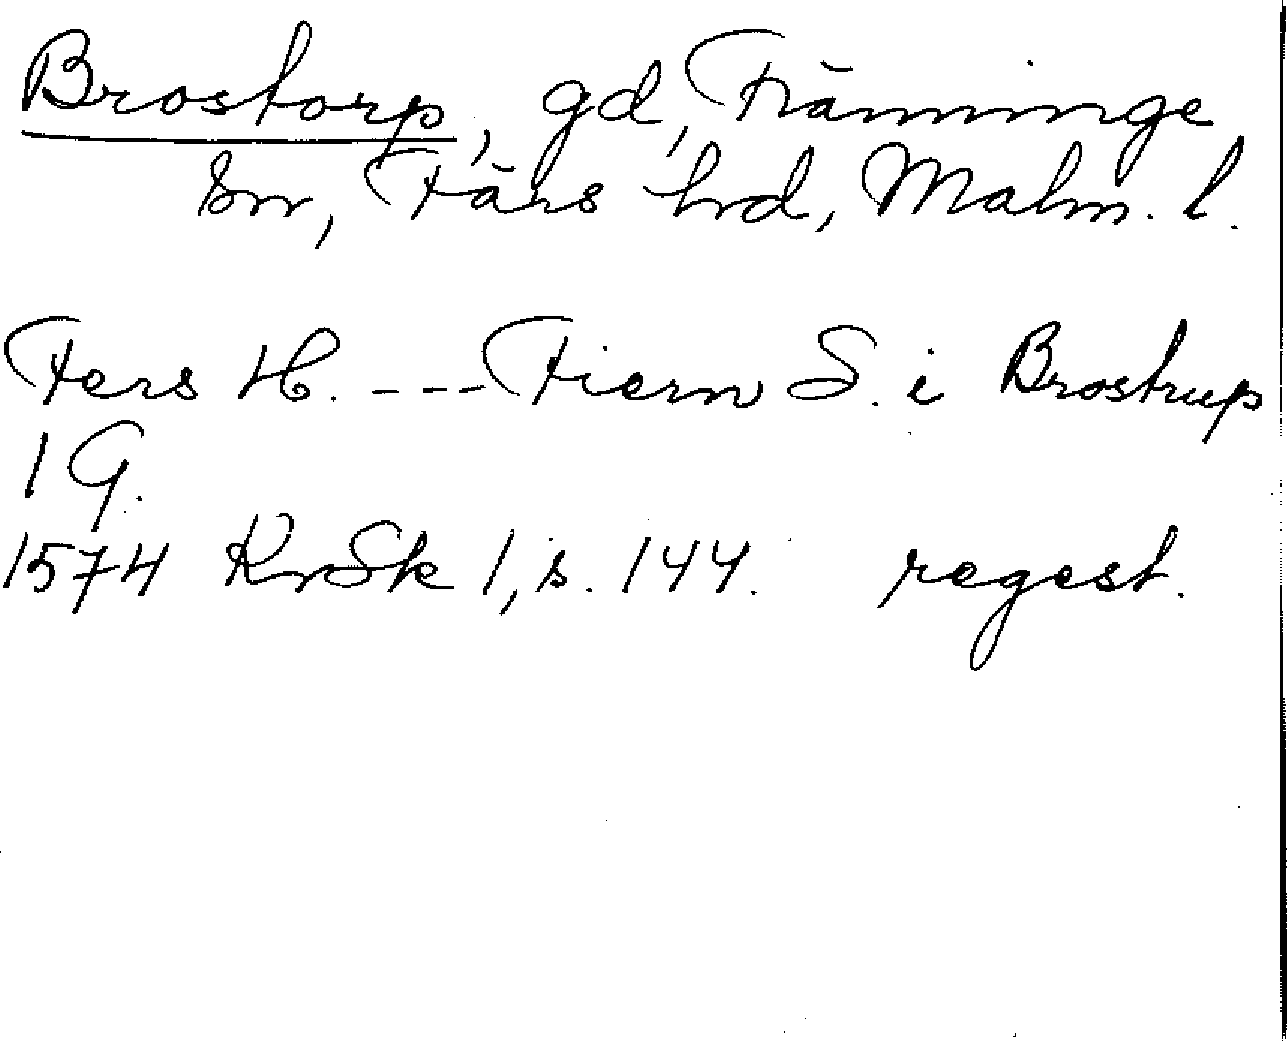 Brostorp, gd, Fränninge
sn, Färs hrd, Malm. l.
Fers H. --- Fiern S. i Brostrup
1 G.
1574 KrSk 1, s. 144. regest.